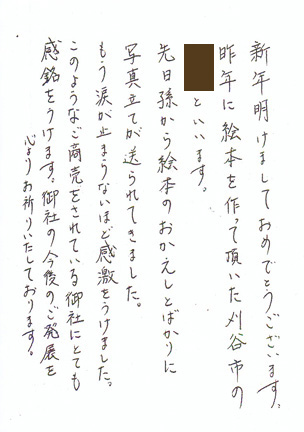 新年明けましておめでとうございます。
昨年に絵本を作って頂いた刈谷市の
といいます。
先日孫から絵本のおかえしとばかりに
写真立てが送られてきました。
もう涙が止まらないほど感激をうけました。
このようなご商売をされている御社にとても
感銘をうけます。御社の今後のご発展を
心よりお祈りいたしております。